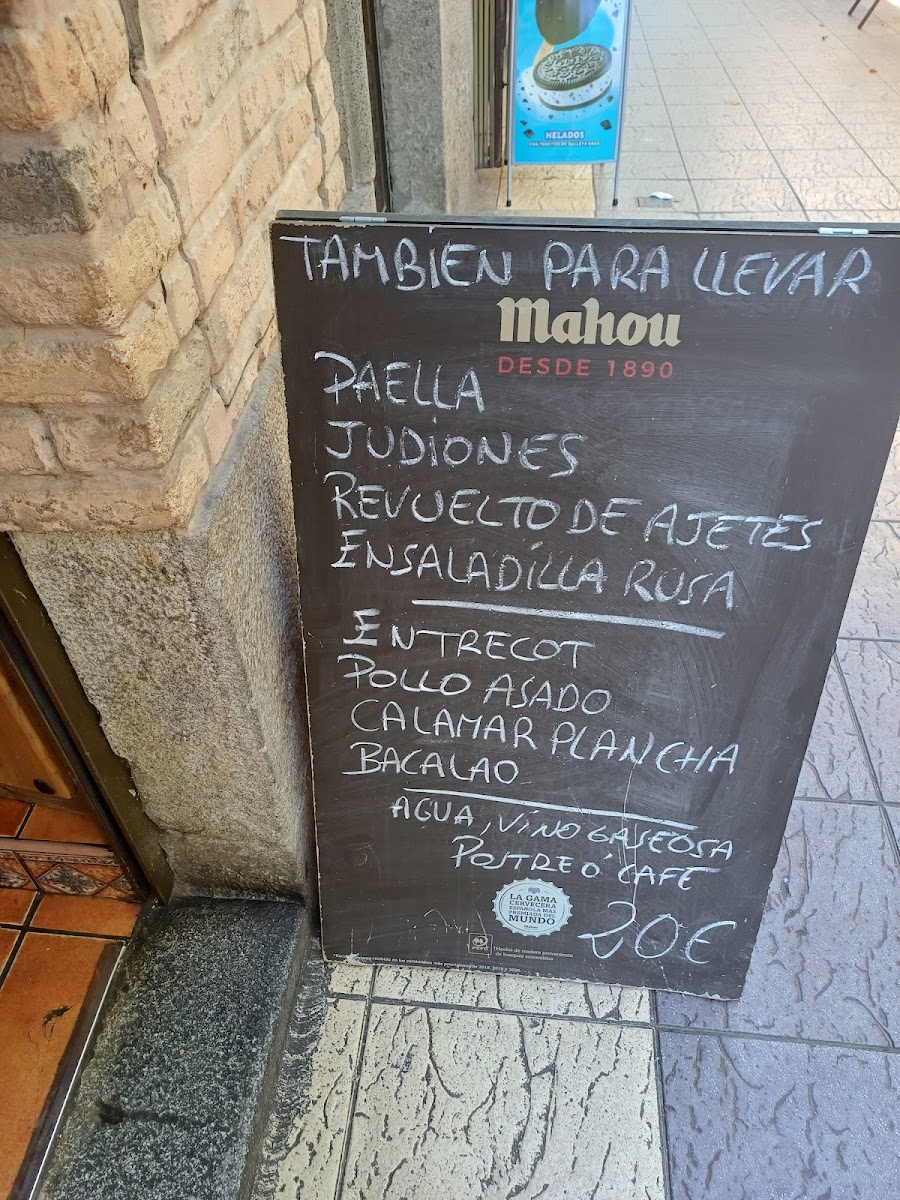 HELADOS
CON TROCITOS DE GALLETA OREO
TAMBIEN PARA LLEVAR
Mahou
DESDE 1890
PAELLA
JUDIONES
REVUELTO DE AJETES
ENSALADILLA RUSA
ENTRECOT
POLLO ASADO
CALAMAR PLANCHA
BACALAO
AGUA, VINO GASEOSA
POSTRE Ó CAFE
LA GAMA
CERVECERA
ESPAÑOLA MÁS
PREMIADA DEL
MUNDO
Mahou
20€
*Hecho de madera proveniente
de bosques sostenibles